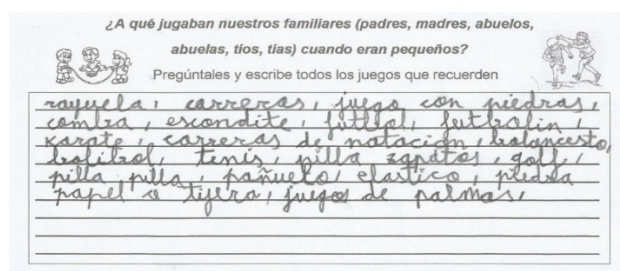 ¿A qué jugaban nuestros familiares (padres, madres, abuelos,
abuelas, tíos, tías) cuando eran pequeños?
Pregúntales y escribe todos los juegos que recuerden
rayuela, carreras, juego con piedras,
comba, escondite, futbol, futbolin,
karate, carreras de natación, baloncesto,
bolibol, tenis, pilla zapatos, golf,
pilla pilla, pañuelo, elastico, piedra
papel o tijera, juegos de palmas,